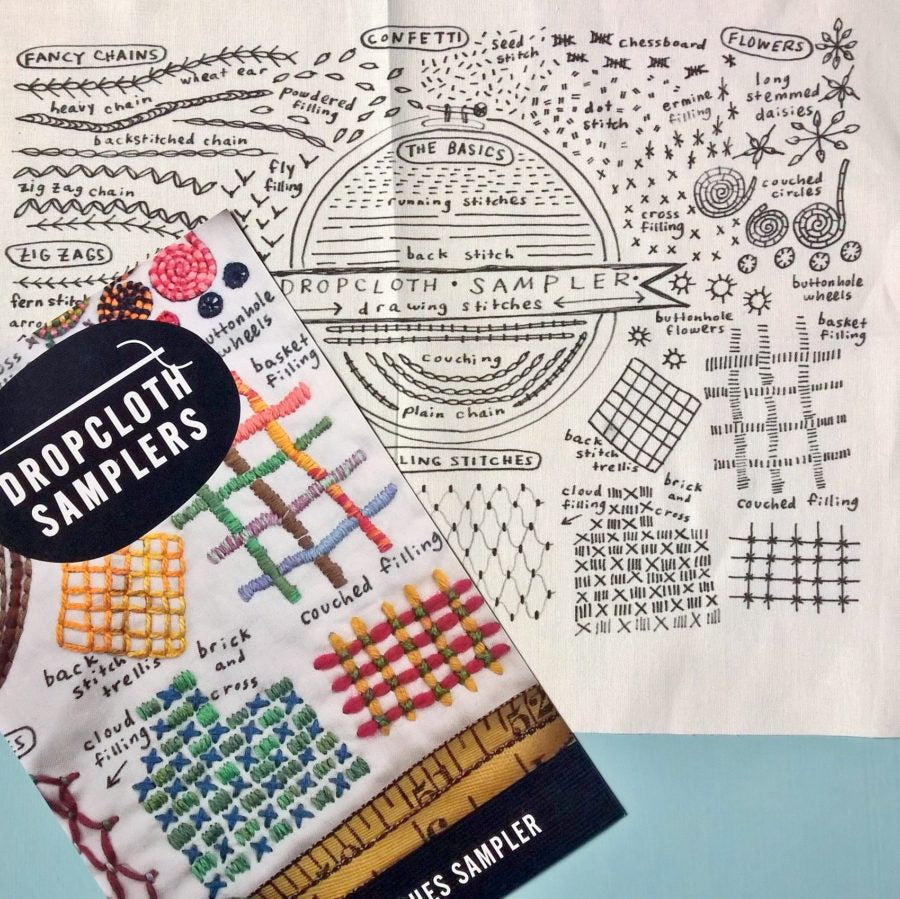 FANCY CHAINS
wheat ear
heavy chain
backstitched chain
zig zag chain
powdered
filling
fly
filling
CONFETTI
seed
stitch
chessboard
dot
stitch
ermine
filling
cross
filling
FLOWERS
long
stemmed
daisies
couched
circles
buttonhole
wheels
buttonhole
flowers
THE BASICS
running stitches
back stitch
DROPCLOTH · SAMPLER·
drawing stitches
couching
plain chain
ZIG ZAGS
fern stitch
basket
filling
back
stitch
trellis
LING STITCHES
cloud
filling
brick
and
cross
couched filling
DROPCLOTH
SAMPLERS
buttonhole
wheels
basket
filling
couched filling
back
stitch
trellis
brick
and
cross
cloud
filling
HES SAMPLER